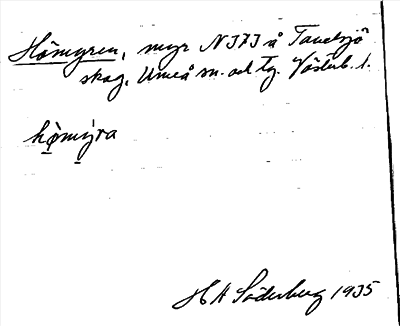 Hömyren, myr NIZI å Tavelsjö
skog, Umeå sn. och tg. Västerb. l.
hömýra
H A Söderberg 1935